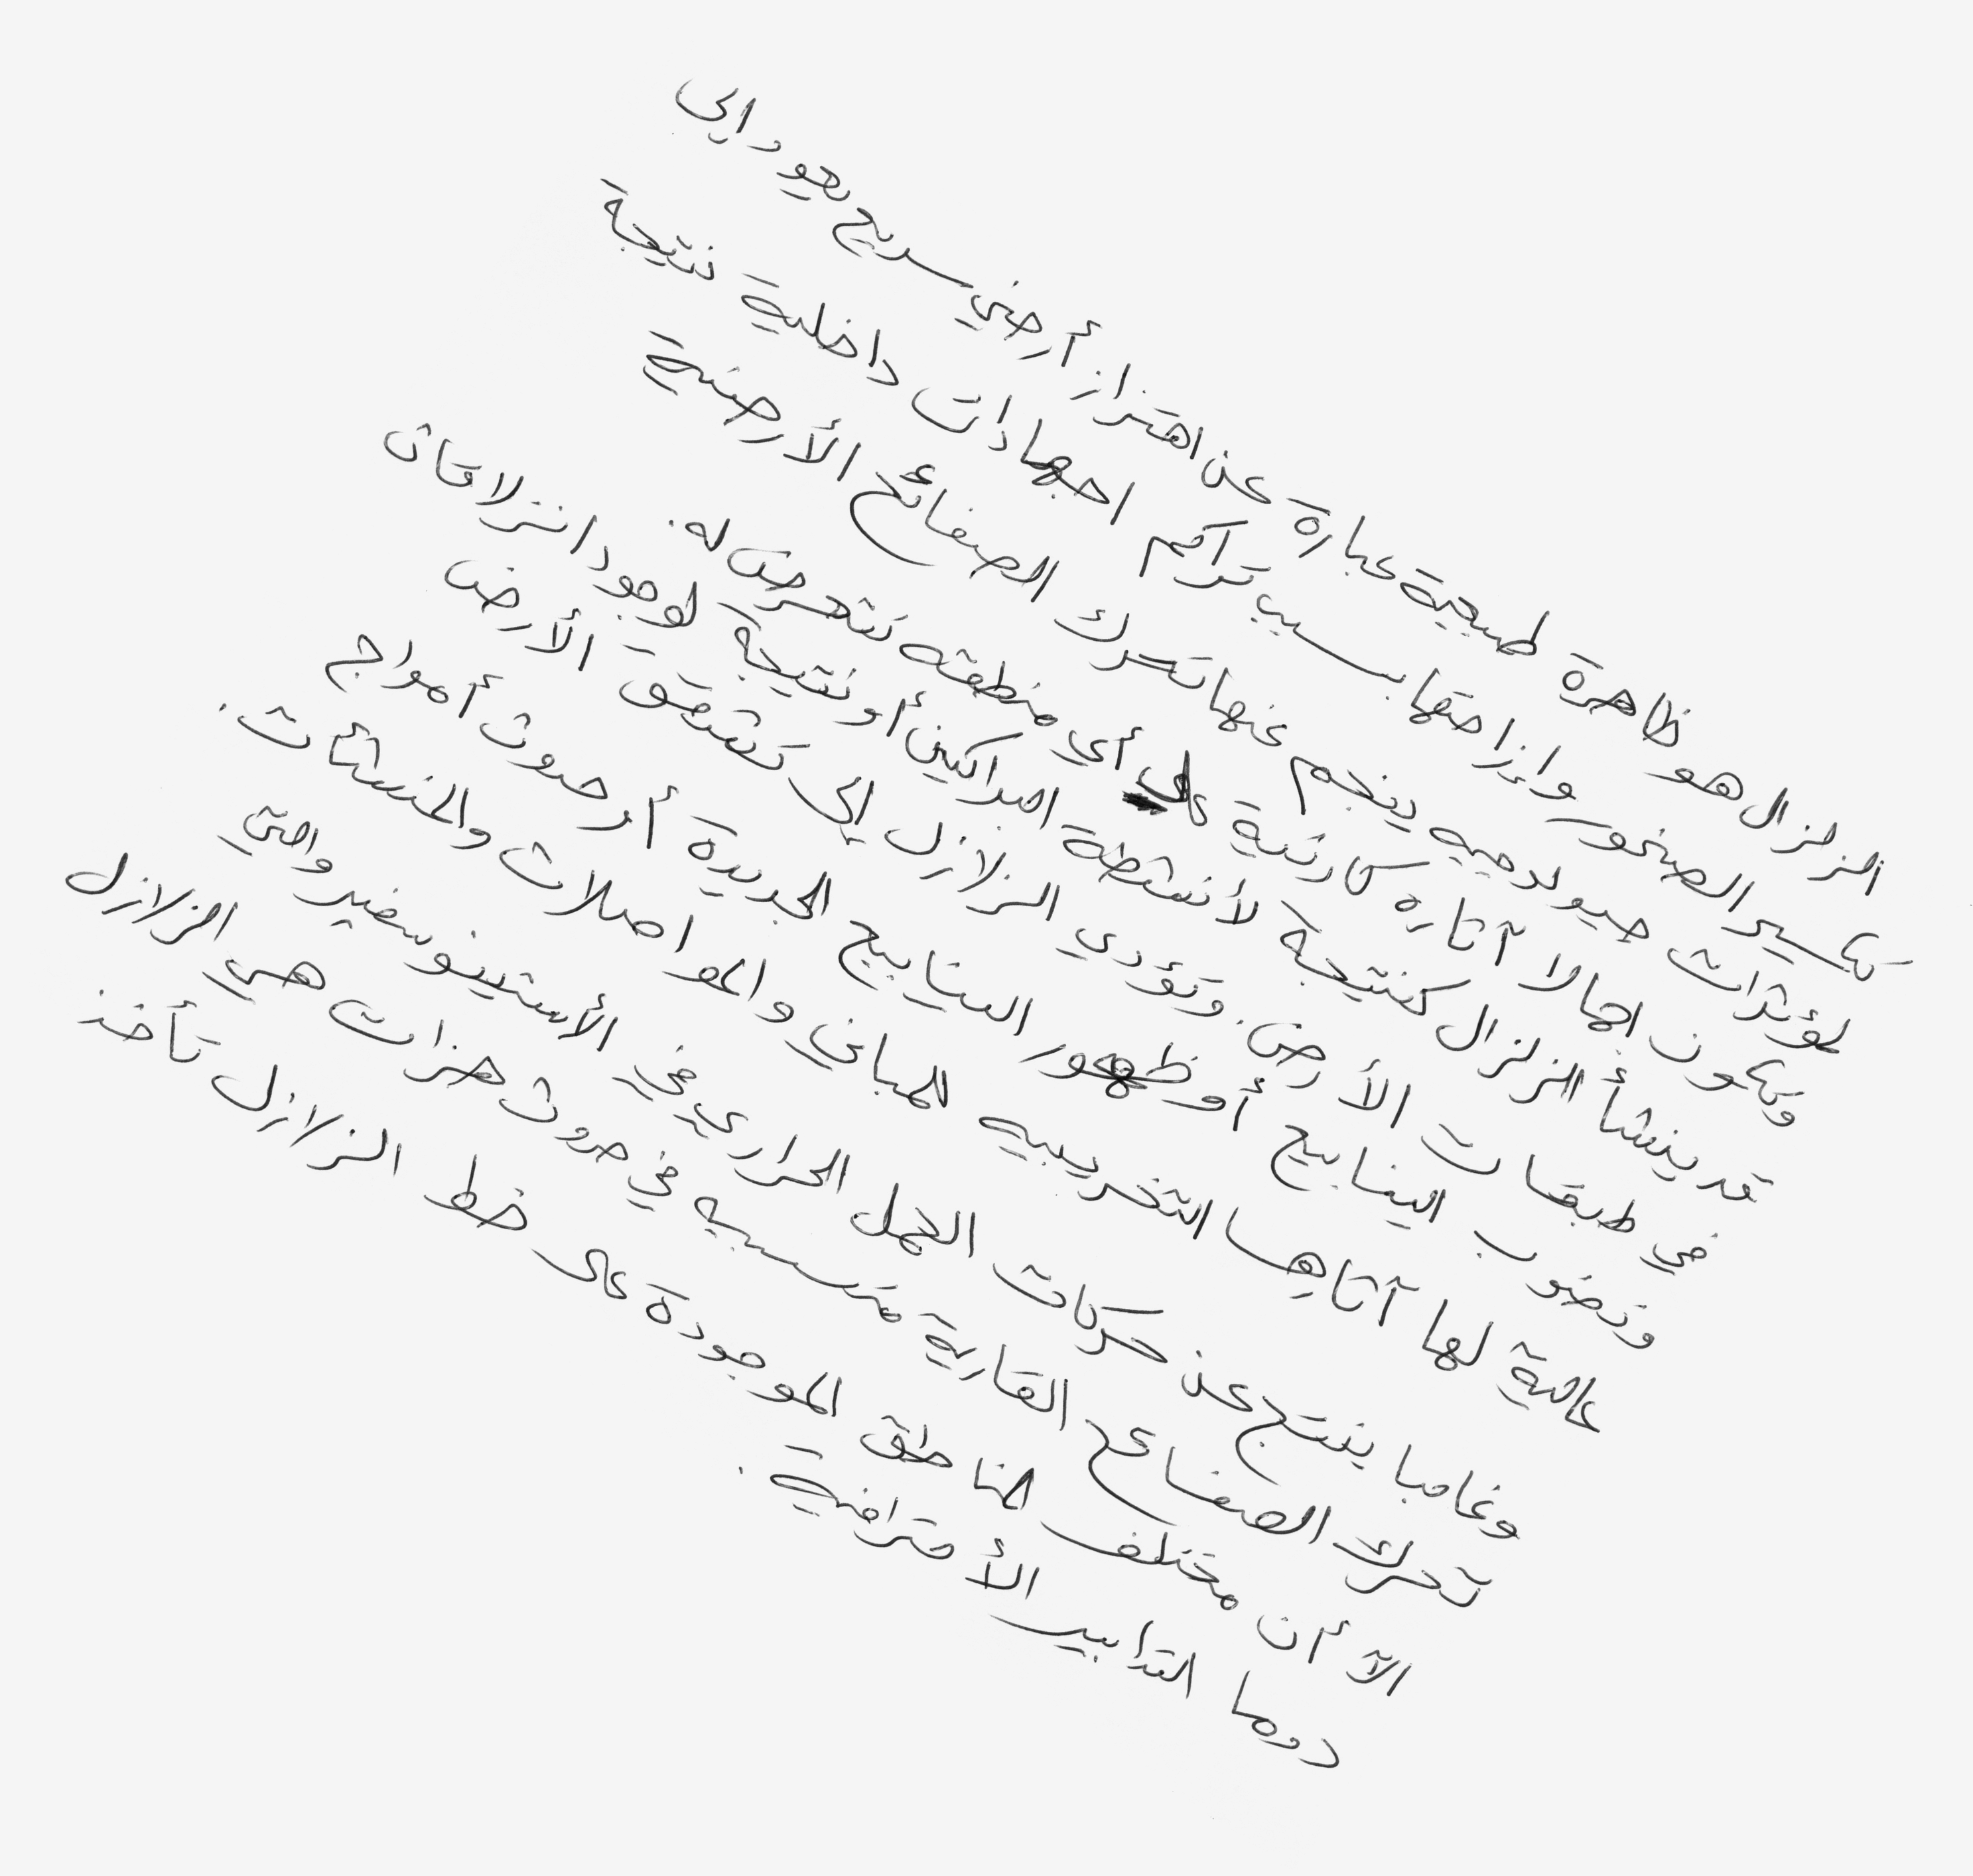 الزلزال هو ظاهرة طبيعية عبارة عن اهتزاز أرضي سريع يعود إلى
تكسير الصخور وإزاحتها بسبب تراكم اجهادات داخلية نتيجة
لمؤثرات جيولوجيه ينجم عنها تحرك الصفائح الأرضية
وتكون اجمالا آثاره كارثية على أي منطقه تتعرض له.
قد ينشأ الزلزال كنتيجة لأنشطة البراكين أو نتيجة لوجود انزلاقات
في طبقات الأرض. وتؤدي الزلازل إلى تشقق الأرض
ونضوب الينابيع أو ظهور الينابيع الجديدة أو حدوث أمواج
عالية لها آثاها التخريبيه للمباني والمواصلات والمنشآت.
وغالبا ينتج عن حركات الحمل الحراري في الأستينوسفير والتي
تحرك الصفائح القارية متسببه في حدوث هزات هي الزلازل
الا أن مختلف المناطق الموجودة على خط الزلازل تأخذ
دوما التدابير الأحترافية.